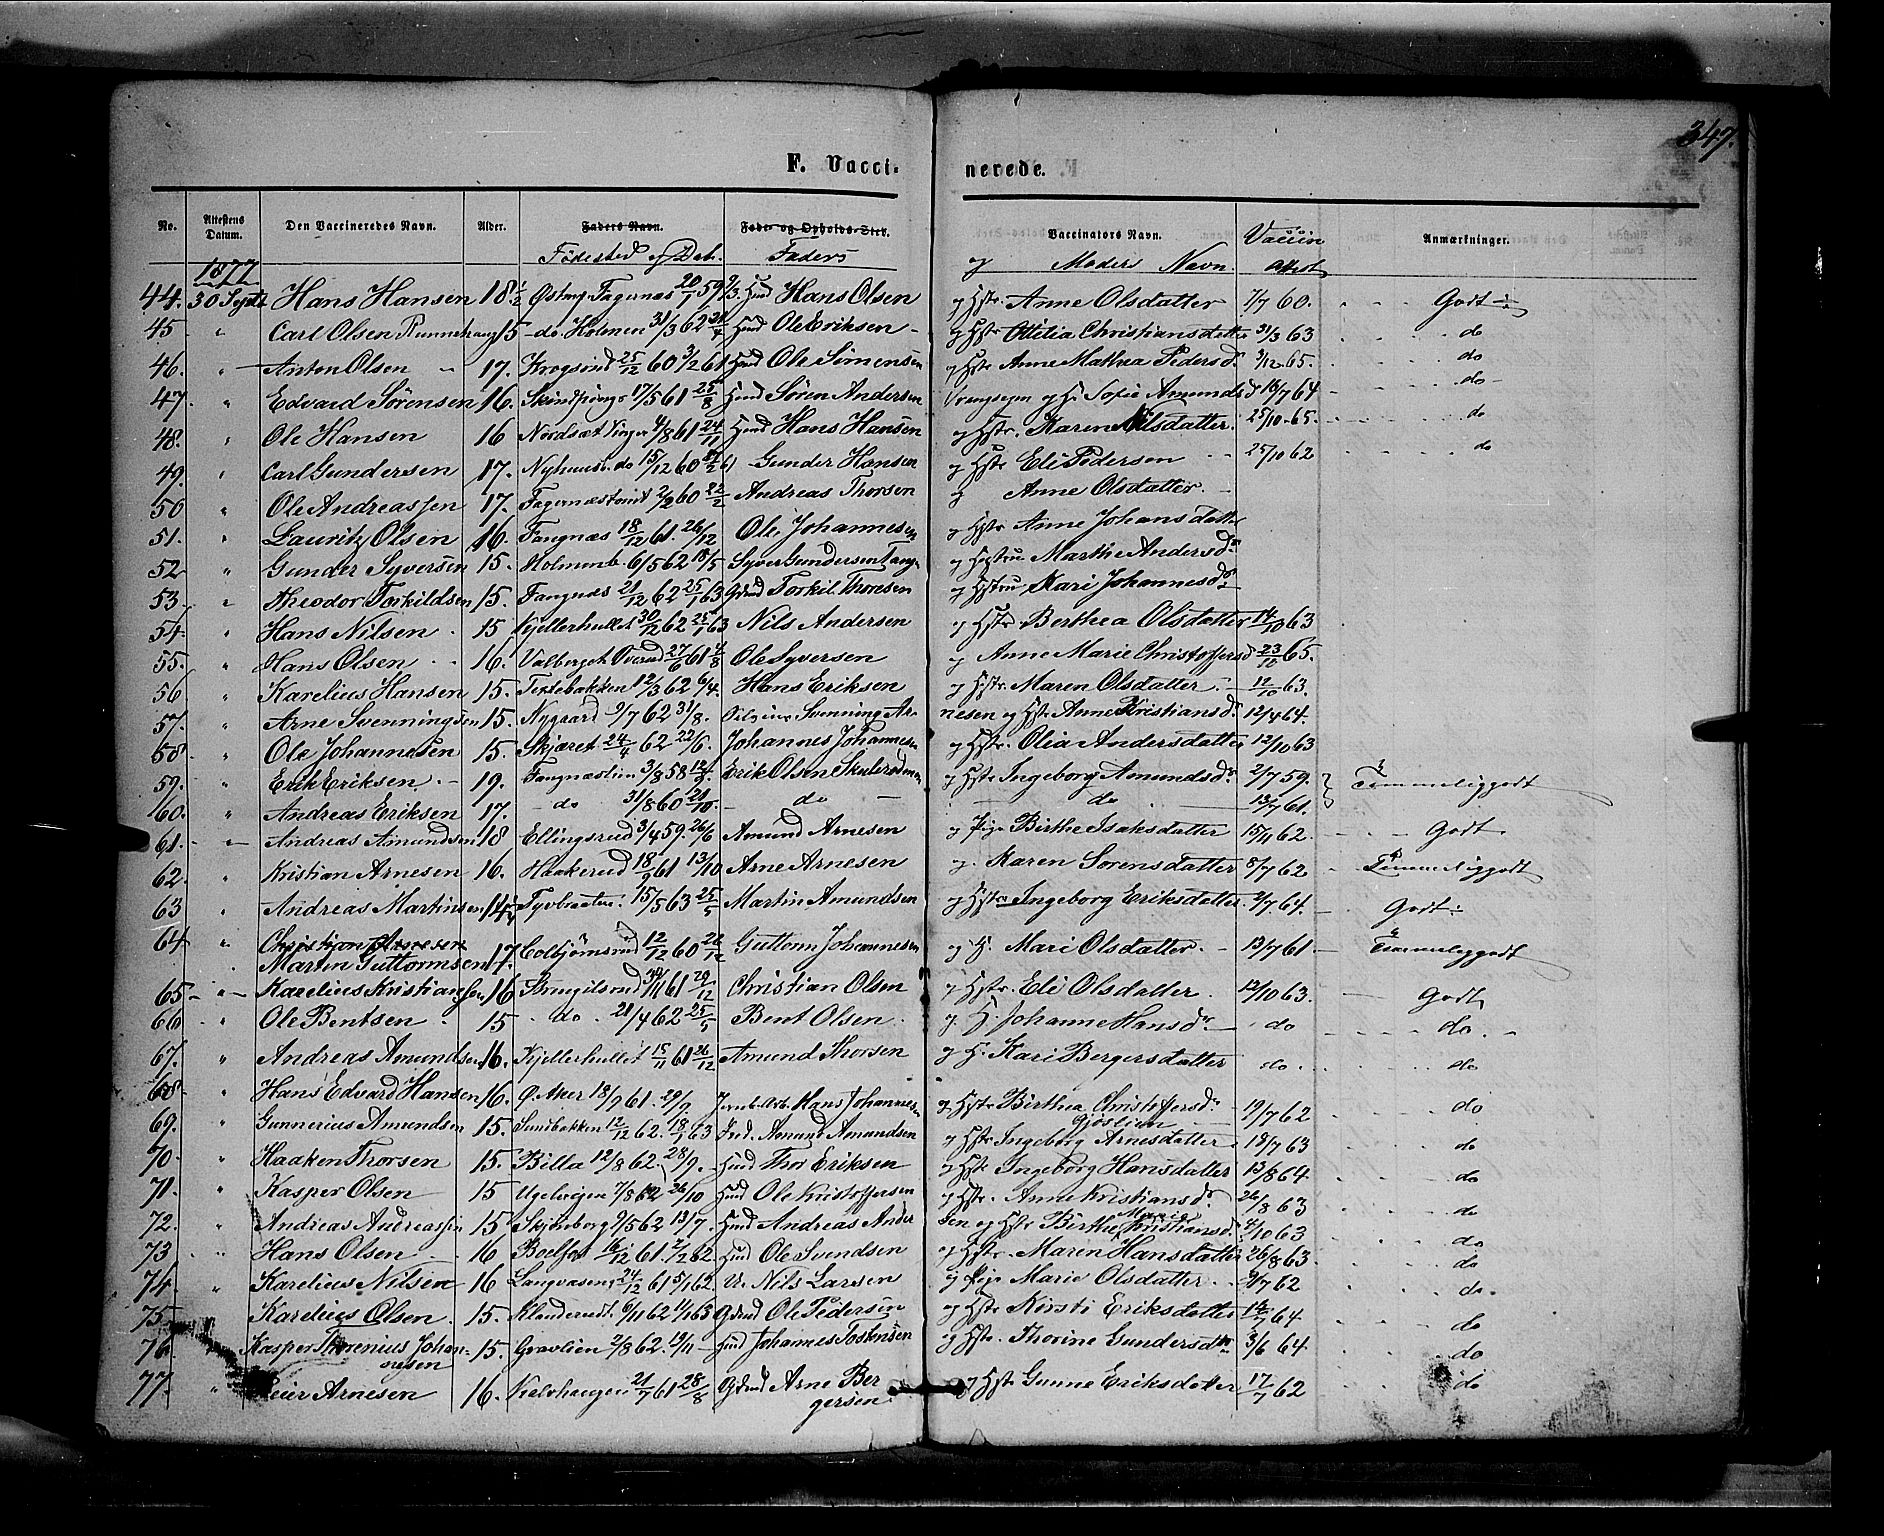 347.
F. Vacci- nerede.
No. Attestens Datum. Den Vaccineredes Navn. Alder. Faders Navn. Føde- og Opholds-Sted. Vaccinators Navn. Vaccin Attest Anmærkninger.
Fødested og Dat. Faders og Moders Navn.
1877
44. 30 Sept Hans Hansen 18 1/2 Fagernæs 20/1 59 Hans Olsen og Hstr Anne Olsdatter 7/7 60. Godt
45 " Carl Olsen 15 do Holmen 31/3 62 Ole Eriksen og Hstr Otilia Christiansdatter 31/3 63 do
46. " Anton Olsen 17. 25/12 60 3/2 61 Ole Simensen og Hstr Anne Mathea Pedersd. 3/12 65. do
47. " Edvard Sørensen 16. 17/5 61 25/8 Søren Andersen og H. Sofie Amunds d 18/7 64 do
48. " Ole Hansen 16 Nordsæt Vinger 4/8 61 24/11 Hans Hansen og Hstr. Karen Nilsdatter. 25/10 65. do
49. " Carl Gundersen 17. do 15/12 60 Gunder Hansen og Hstr Eli Pedersen 25/10 62 do
50 " Ole Andreassen 17. 2/2 60 22/2 Andreas Thorsen og Anne Olsdatter.
51. " Lauritz Olsen 16. Tangnæs 18/12 61. 26/12 Ole Johannesen og Hstr Anne Johansdatter
52 " Gunder Syversen 15. 6/5 62 18/5 Syver Gundersen Tang- og Hustru Marthe Andersdr
53. " Theodor Torkildsen 15. Tangnæs 21/12 62 25/1 63 Torkil Thoresen og Hstru Kari Johannesdr
54. " Hans Nilsen 15 Kjellerhullet 30/12 62 25/1 63 Nils Andersen og Hstr Berthea Olsdatter 14/10 63
55. " Hans Olsen 16. Valberget 27/6 61 4/8 Ole Syversen og Anne Marie Christoffersd 23/10 65.
56 " Karelius Hansen 15. 12/3 62 6/4. Hans Eriksen og Hstr. Maren Olsdatter 12/10 63.
57. " Arne Svenningsen 15. Nygaard 9/7 62 31/8. Svenning Ar- nesen og Hstr Anne Kristiansd. 12/4 64.
58. " Ole Johannesen 15. Skjæret 24/4 62 22/6. Johannes Johannesen og Hstr. Olia Andersdatter 12/10 63
59. " Erik Eriksen 19. Tangnæslien 3/8 58 12/9 Erik Olsen og Hstr Ingeborg Amundsdr 2/7 59. Temmeliggodt
60. " Andreas Eriksen 17. do 31/8 60 21/10. do do 13/7 61.
61. " Andreas Amundsen 18 Ellingsrud 3/4 59. 26/6 Amund Arnesen og Pige Birthe Isaksdatter 15/11 62. Godt
62. " Kristian Arnesen 16. Haakerud 18/9 61 13/10 Arne Arnesen og Karen Sørensdatter 8/7 62 Temmeliggodt
63 " Andreas Martinsen 14 Tyvbraaten 15/5 63 25/5 Martin Amundsen og Hstr Ingeborg Eriksdatter 2/7 64. Godt
64 " Christian Arnesen
Martin Guttormsen 17. Colbjørnsrud 12/12 60 26/12 Guttorm Johannesen og H. Mari Olsdatter. 13/7 61 Temmeliggodt
65 " Karelius Kristiansen 16 61 29/12 Christian Olsen og Hstr. Eli Olsdatter. 12/10 63. Godt
66 " Ole Bentsen 15 do 21/4 62 25/5 Bent Olsen og H. Johanne Hansdr do do
67. " Andreas Amundsen 16. Kjellerhullet 15/11 61 26/12 Amund Thorsen og H. Kari Bergersdatter do do
68 " Hans Edvard Hansen 16. Ø. Aker 18/9 61. 29/9 Hans Johannesen og Hstr Birthea Christoffersdr 19/7 62 do
69. " Gunnerius Amundsen 15. Sundbakken 12/12 62. 18/1 63 Ind. Amund Amundsen Gjøslien og Hstr Ingeborg Arnesdatter 18/7 63 do
70. " Haaken Thorsen 15. Billa 12/8 62. 28/9. Thor Eriksen og Hstr Ingeborg Hansdatter 13/8 64 do
71. " Kasper Olsen 15 7/8 62 26/10 Ole Kristoffersen og Hstr. Anne Kristiansdr 26/8 63 do
72. " Andreas Andreassen 15 Skjønberg 9/5 62 13/7. Andreas Ander sen og Hstr Birthe Marie Kristiansd. 4/10 63 do
73 " Hans Olsen 16 Boelfos 16/12 61. 2/2 62. Ole Svendsen og Hstr. Maren Hansdatter 26/8 63. do
74. " Karelius Nilsen 16 Langvasen 24/12 61 5/1 62. Nils Larsen og Pige Marie Olsdatter 9/7 62 do.
75. Karelius Olsen. 15. 6/11 62 11/1 63 Ole Pedersen og Hstr Kirsti Eriksdatter 14/7 64 do
76 Kasper Thorenius Johan-
nesen 15. Gravlien 2/8 62. 19/11 Johannes Tostensen og Hstr. Thorine Gundersdtr 3/6 64 do
77. " Peier Arnesen 16. Kielshaugen 21/7 61 28/8 Arne Ber
gersen. og Hstr Gunne Eriksdatter 17/7 62 do